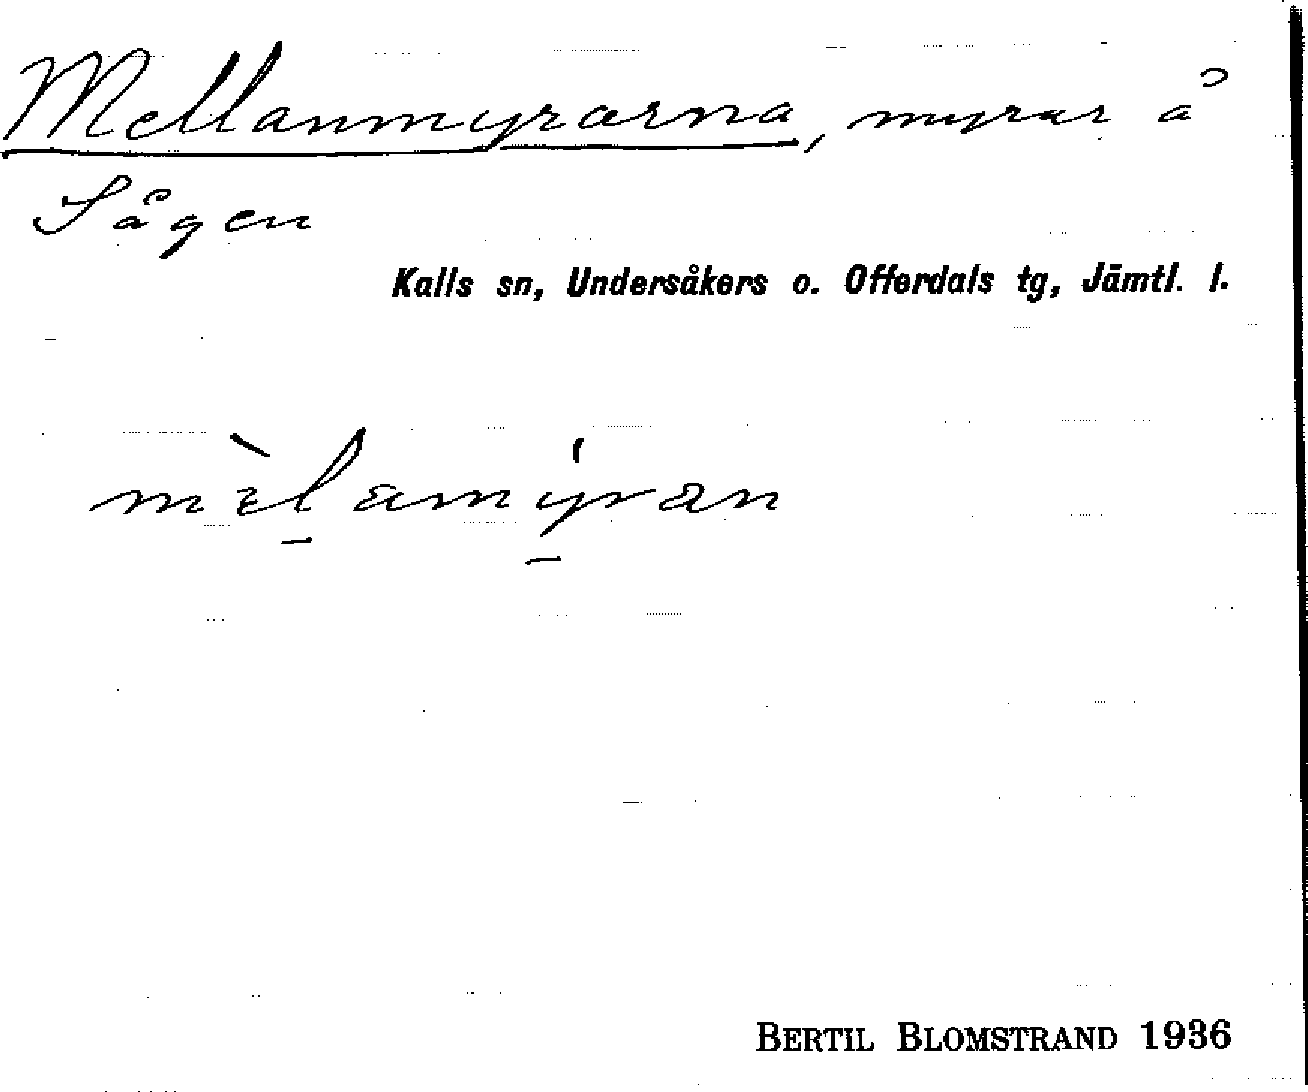 Mellanmyrarna, myrar å
Sågen
Kalls sn, Undersåkers o. Offerdals tg, Jämtl. l.
mèlamýran
BERTIL BLOMSTRAND 1936